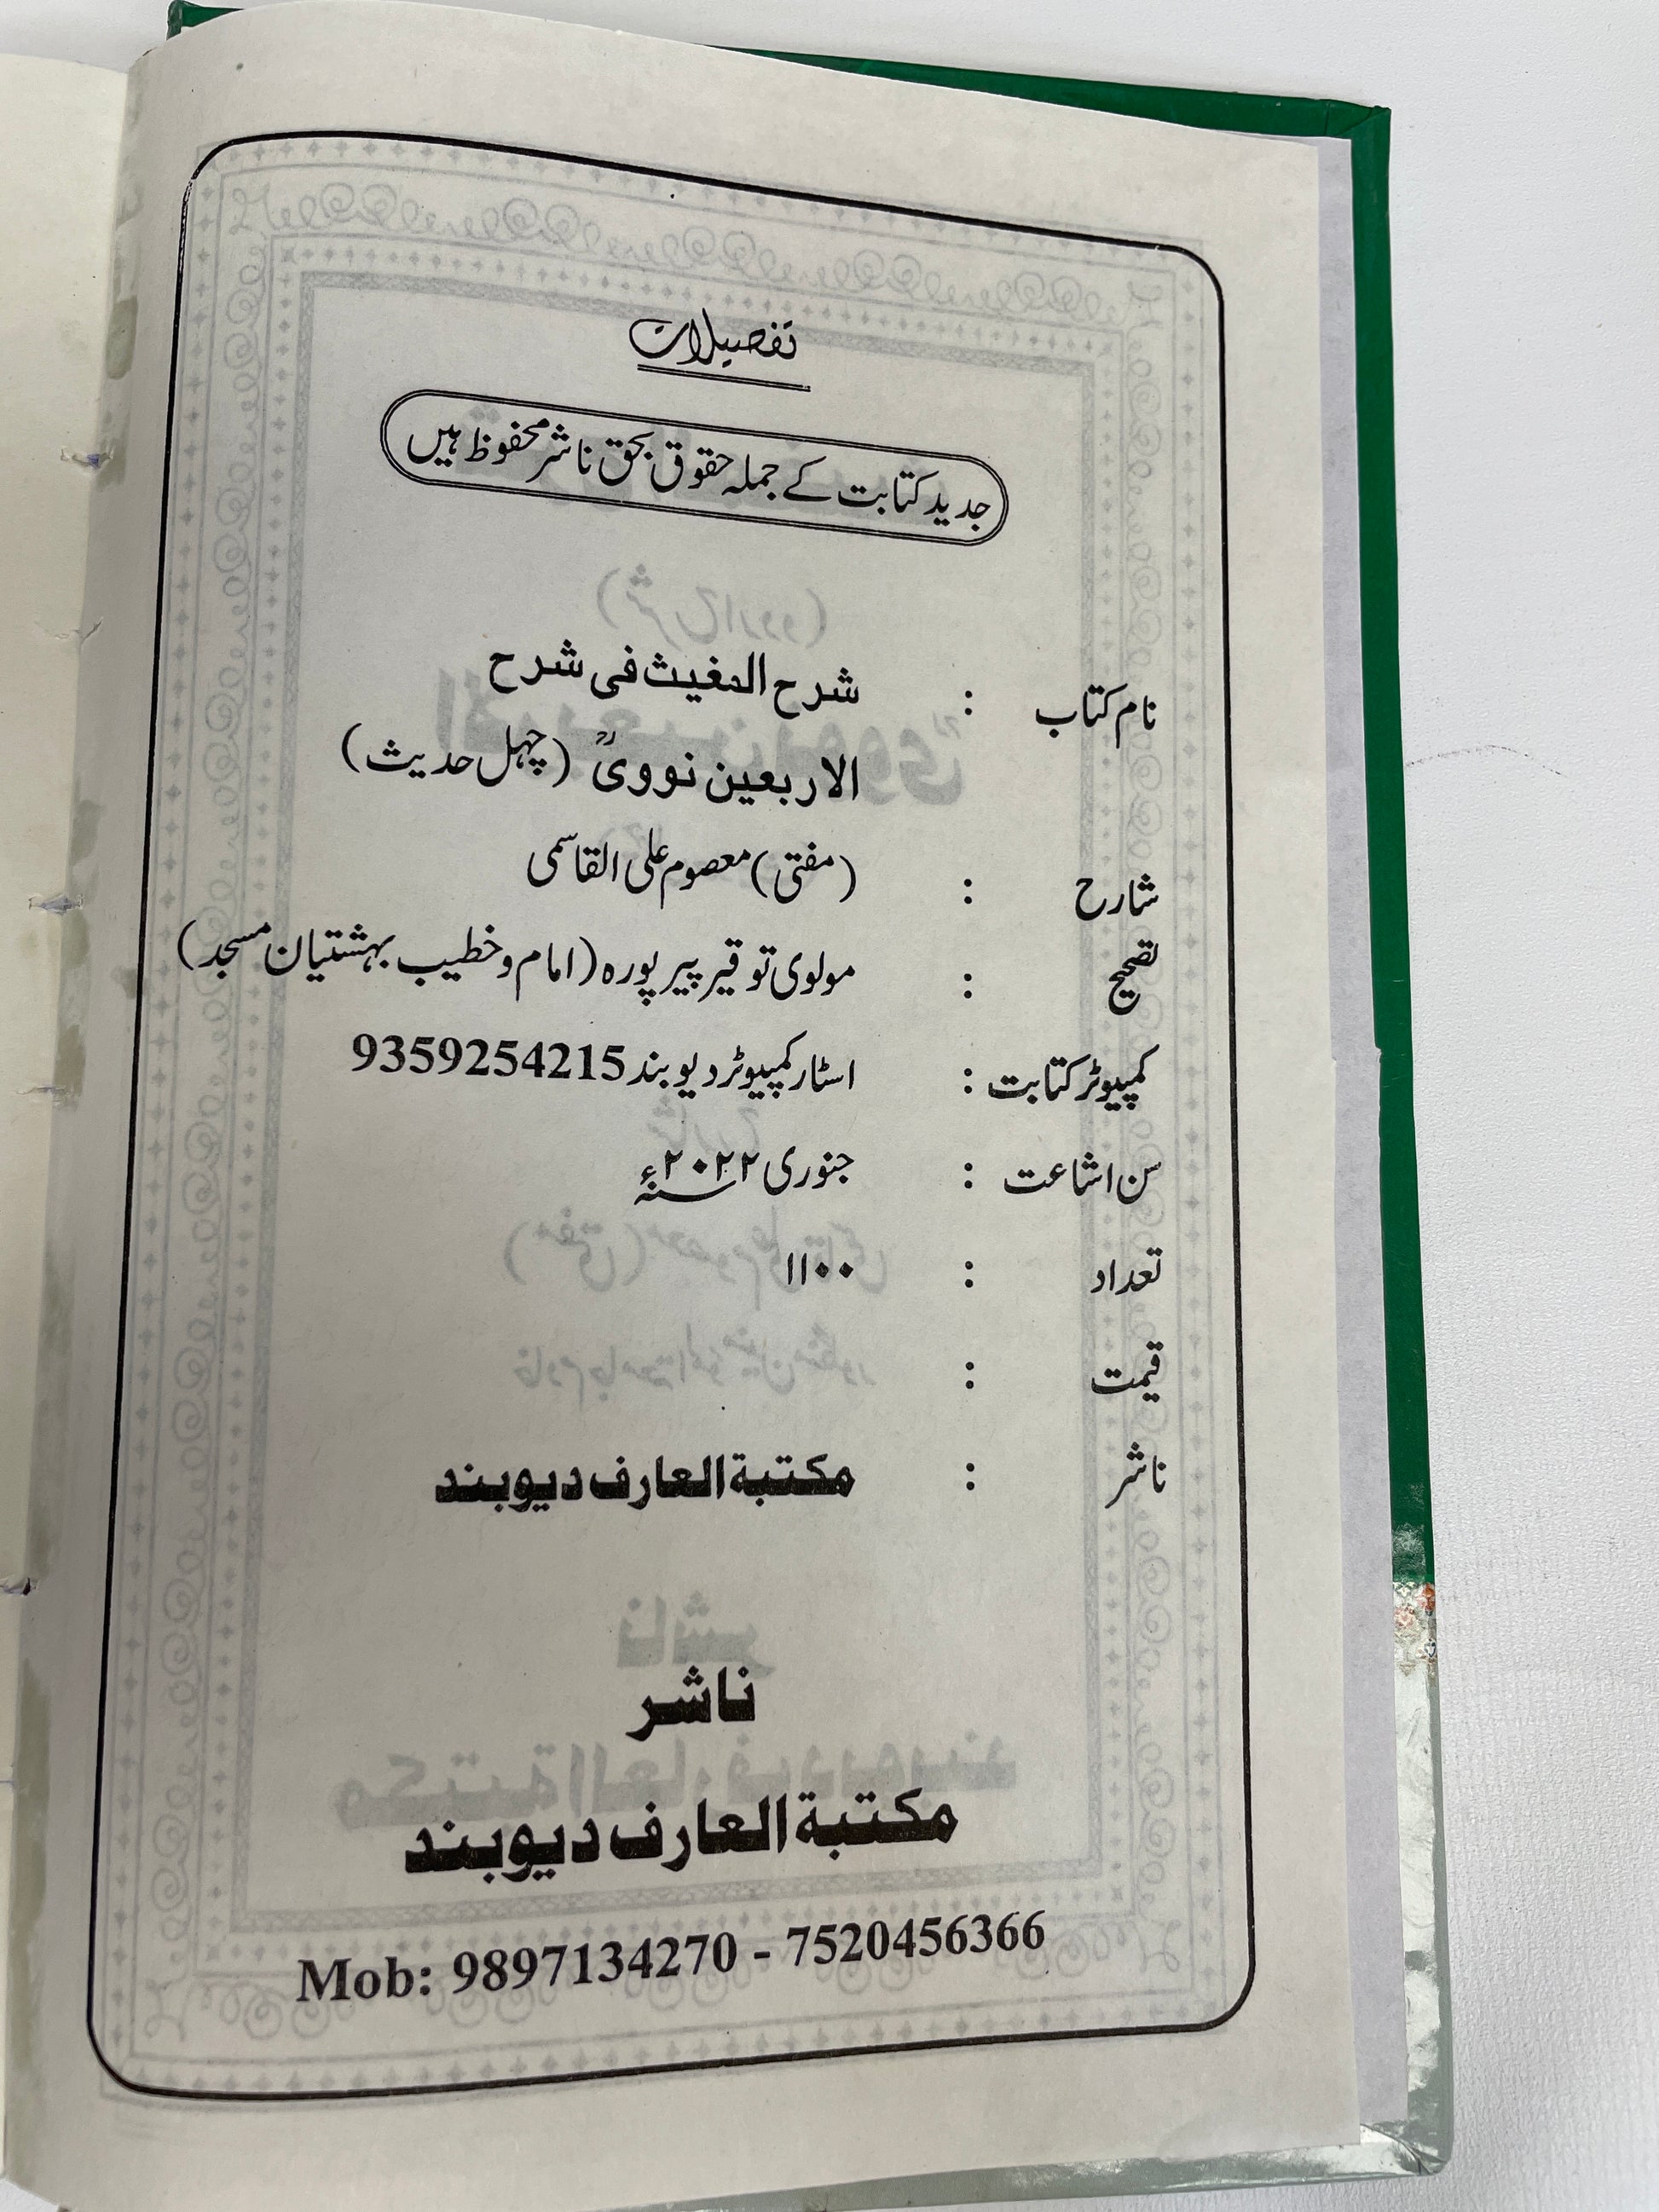 تفصیلات
جدید کتابت کے جملہ حقوق بحق ناشر محفوظ ہیں
نام کتاب : شرح المغیث فی شرح
الاربعین نوویؒ (چہل حدیث)
شارح : (مفتی) معصوم علی القاسمی
تصحیح : مولوی توقیر پیر پورہ (امام و خطیب بہشتیان مسجد)
کمپیوٹر کتابت : اسٹار کمپیوٹر دیوبند 9359254215
سن اشاعت : جنوری ۲۰۲۲ء
تعداد : ۱۱۰۰
قیمت :
ناشر : مکتبة العارف دیوبند
ناشر
مکتبة العارف دیوبند
Mob: 9897134270 - 7520456366